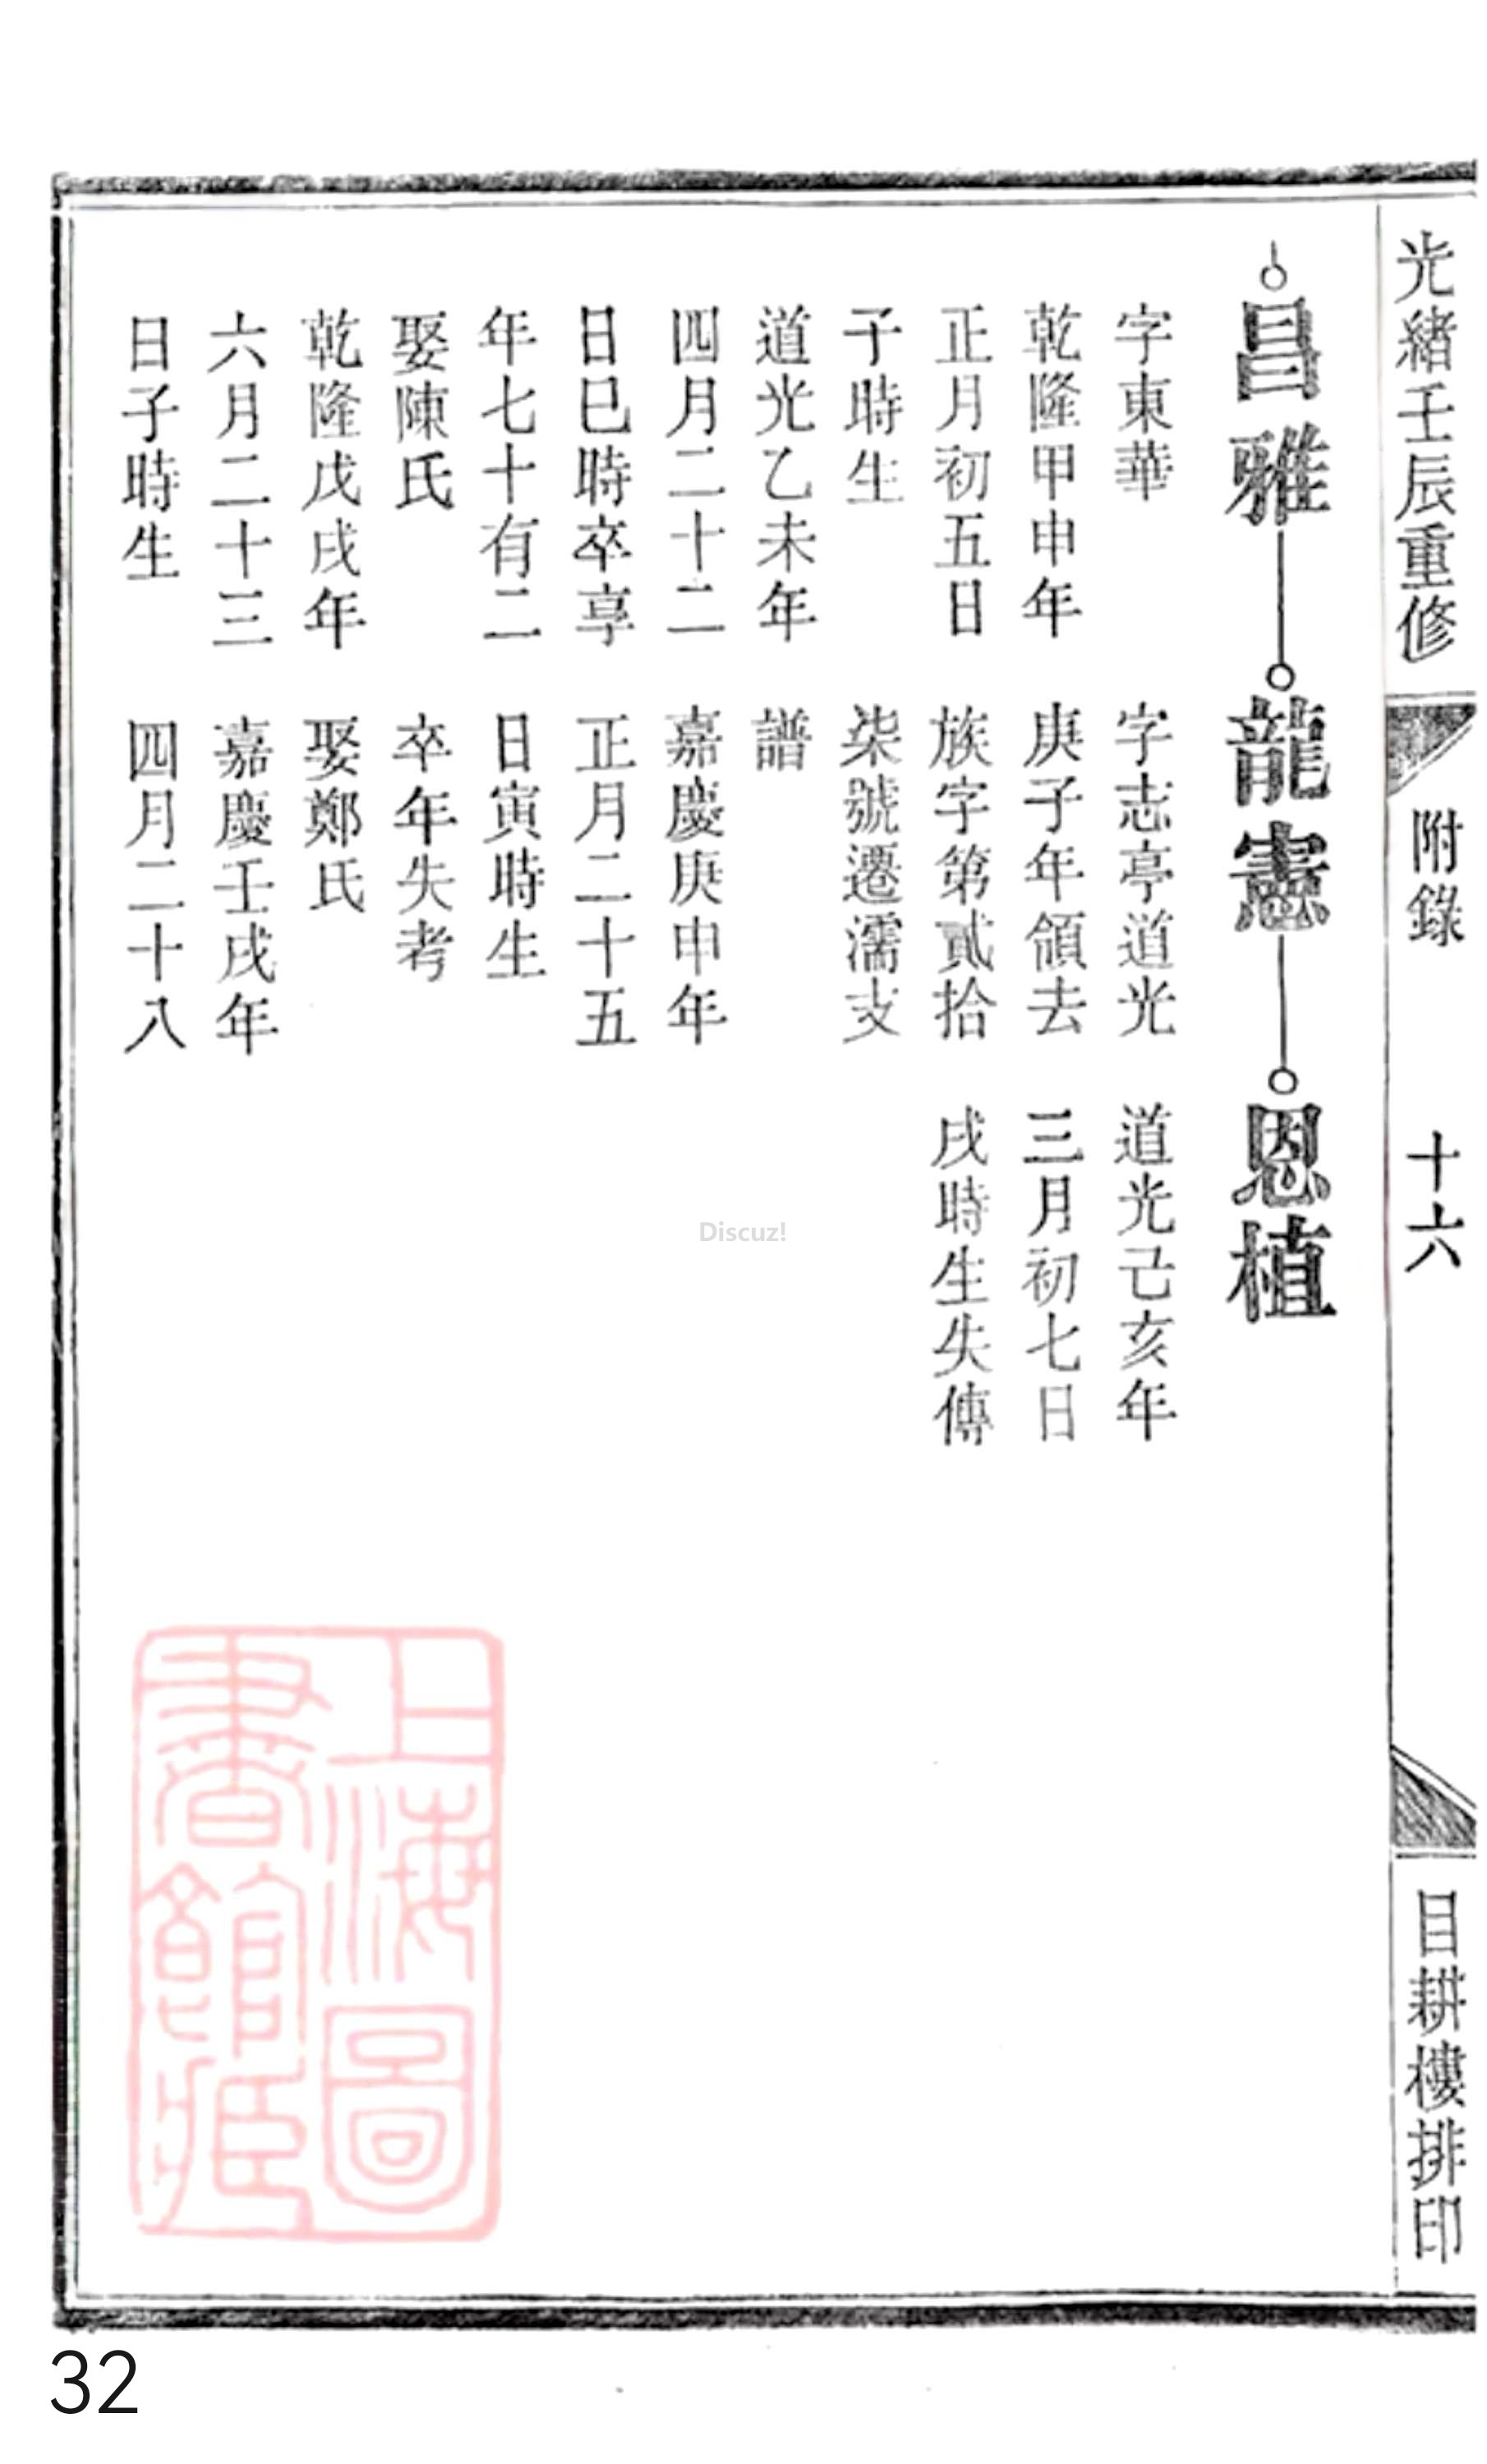 光緒壬辰重修
附錄
十六
目耕樓排印
昌雅
字東華
乾隆甲申年
正月初五日
子時生
道光乙未年
四月二十二
日巳時卒享
年七十有二
娶陳氏
乾隆戊戌年
六月二十三
日子時生
龍憲
字志亭道光
庚子年領去
族字第貳拾
柒號遷濡支
譜
嘉慶庚申年
正月二十五
日寅時生
卒年失考
娶鄭氏
嘉慶壬戌年
四月二十八
恩植
道光己亥年
三月初七日
戌時生失傳
上海圖
書館藏
Discuz!
32